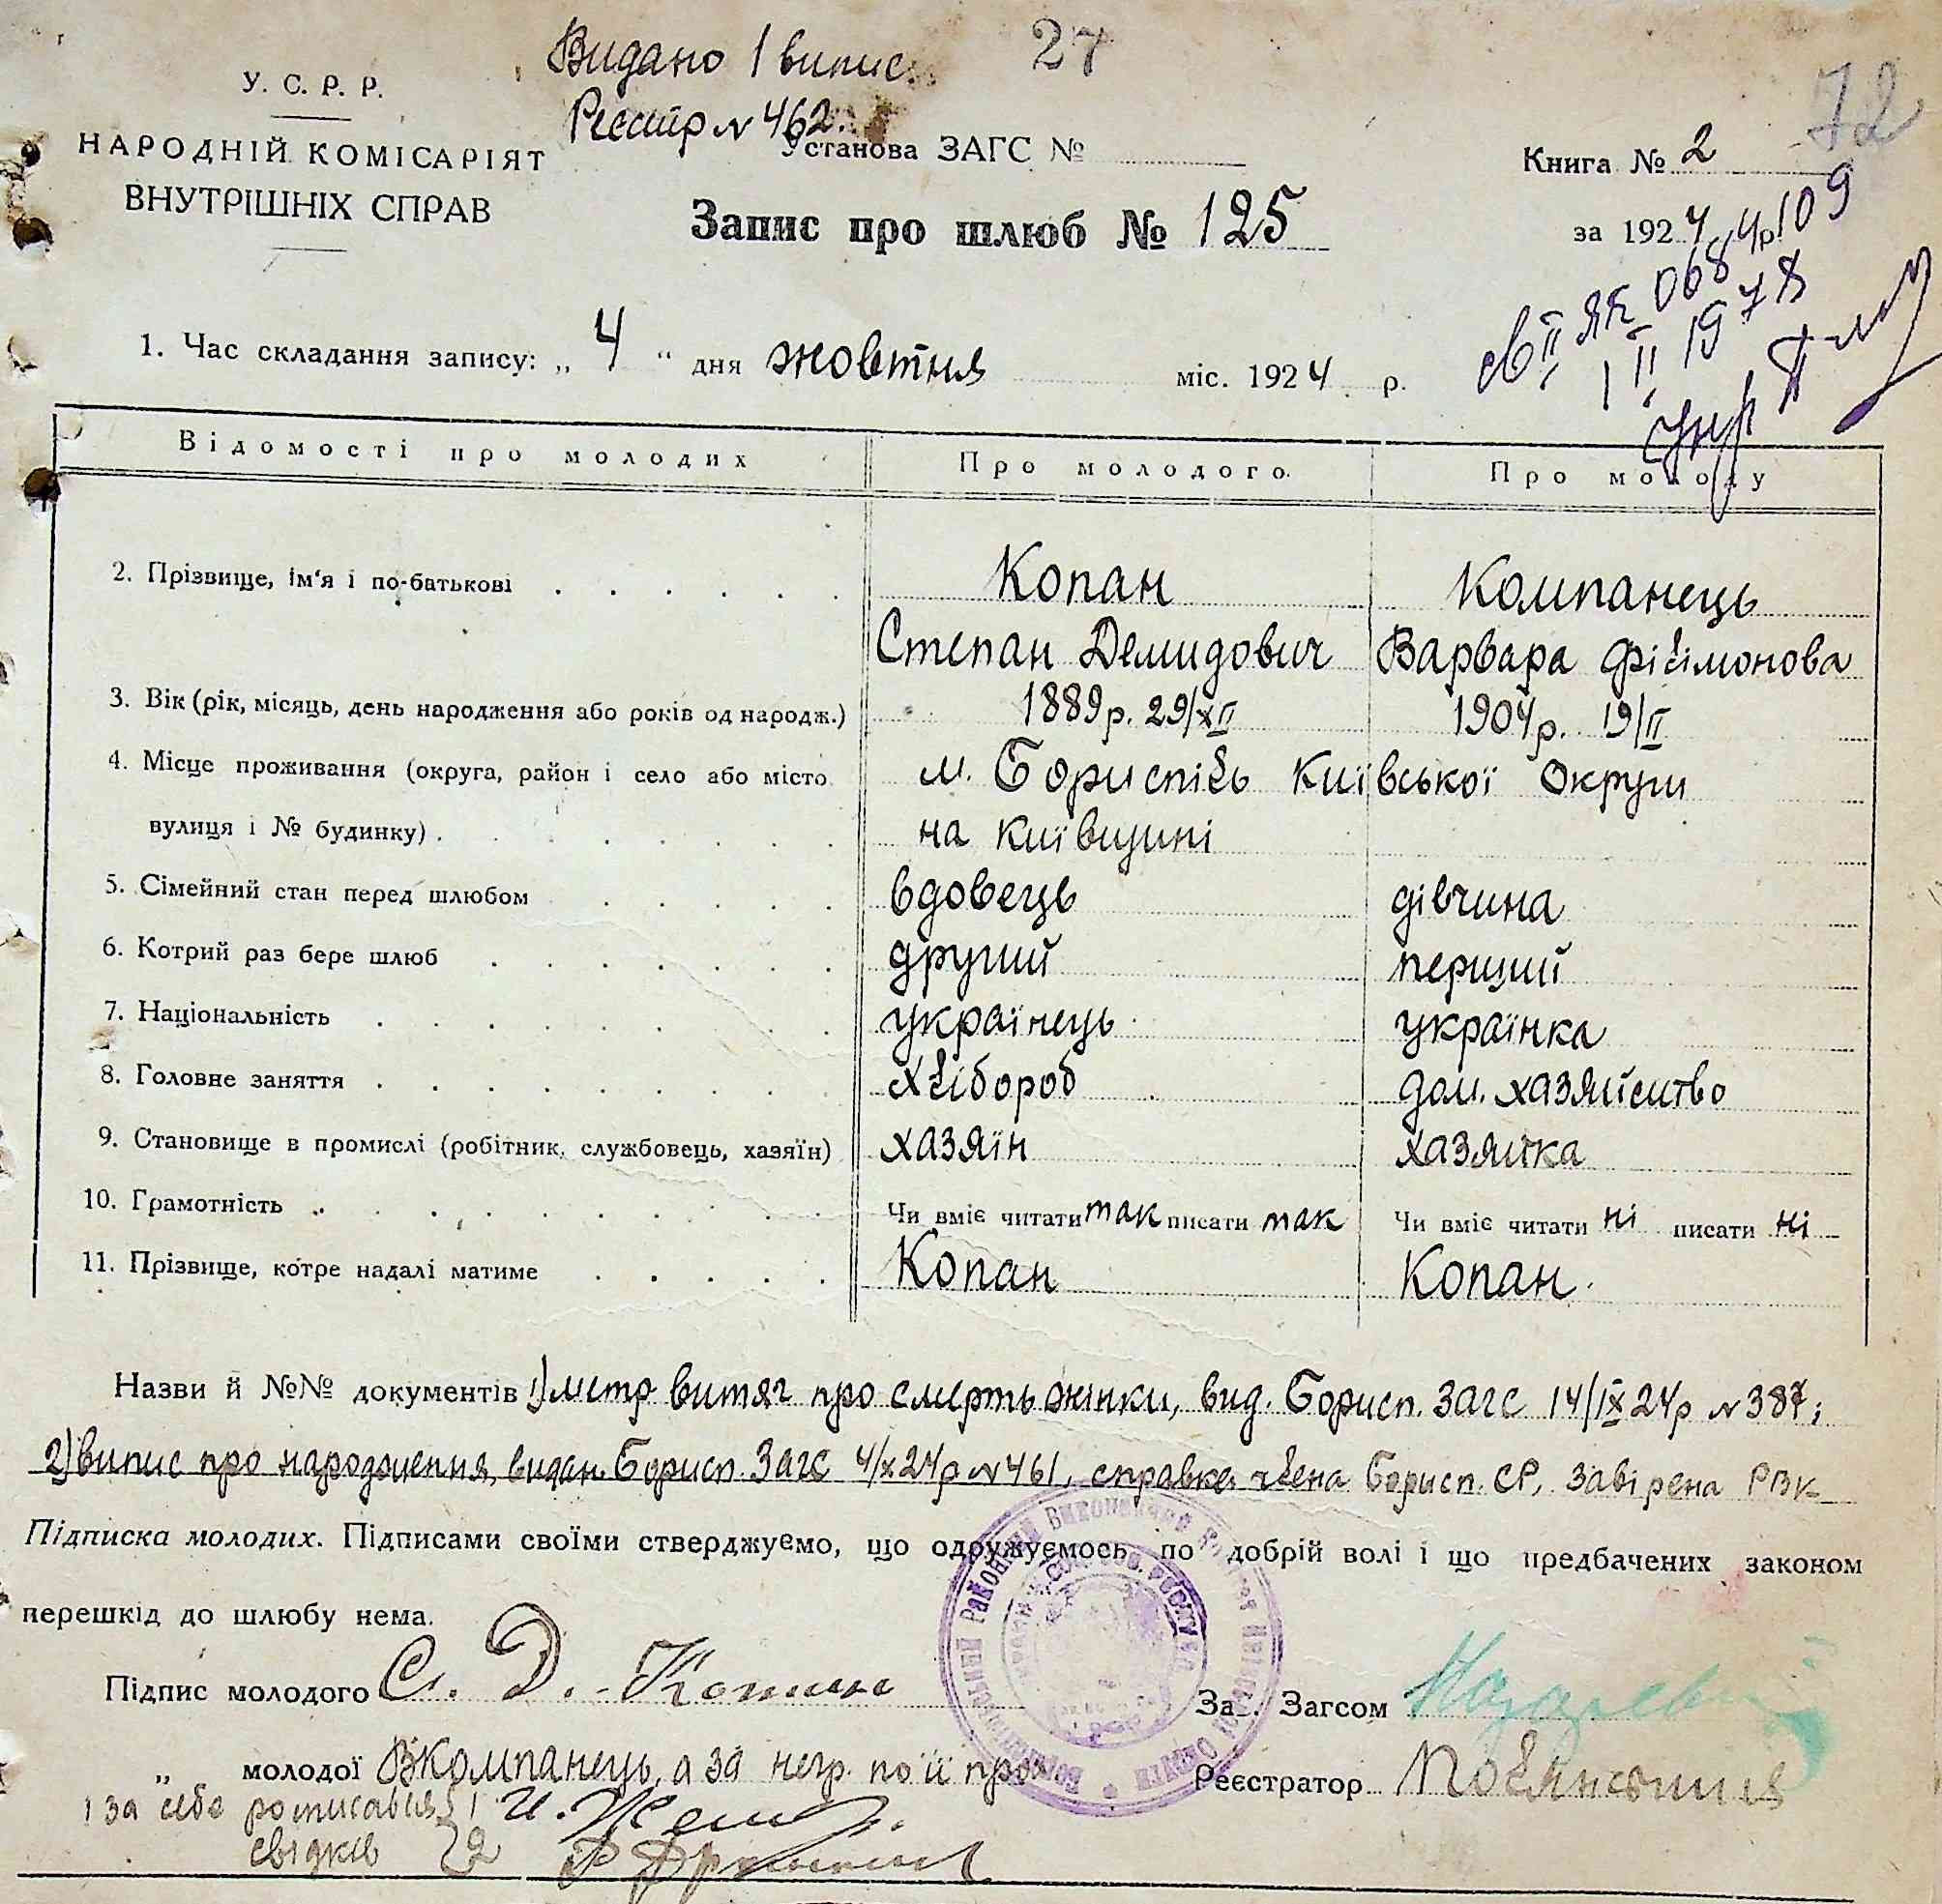 Видано 1 випис.
27
Реєстр N 462.
72
У. С. Р. Р.
НАРОДНІЙ КОМІСАРІЯТ
ВНУТРІШНІХ СПРАВ
Установа ЗАГС №
Книга № 2
Запис про шлюб № 125
за 1924 р
109
св. II ЯК 0684
1 II 1978
1. Час складання запису: „ 4 “ дня жовтня міс. 1924 р.
Відомості про молодих Про молодого. Про молоду
2. Прізвище, ім'я і по-батькові Копан Компанець
Степан Демидович Варвара Філімонова
3. Вік (рік, місяць, день народження або років од народж.) 1889 р. 29/XII 1904 р. 19/II
4. Місце проживання (округа, район і село або місто м. Бориспіль Київської Округи
вулиця і № будинку). на Київщині
5. Сімейний стан перед шлюбом вдовець дівчина
6. Котрий раз бере шлюб другий перший
7. Національність українець українка
8. Головне заняття хлібороб дом. хазяйство
9. Становище в промислі (робітник, службовець, хазяїн) хазяїн хазяйка
10. Грамотність Чи вміє читати так писати так Чи вміє читати ні писати ні
11. Прізвище, котре надалі матиме Копан Копан.
Назви й №№ документів 1) метр витяг про смерть жінки, вид. Борисп. Загс 14/IX 24р N 387;
2) випис про народження, видан. Борисп. Загс 4/X 24р N 461, справка члена Борисп. СР, завірена РВК
Підписка молодих. Підписами своїми стверджуємо, що одружуємось по добрій волі і що предбачених законом
перешкід до шлюбу нема.
Підпис молодого С. Д. Копан
Зав. Загсом
„ молодої В Компанець, а за негр. по її прох
Реєстратор
і за себе росписався 1 И.
свідків 2